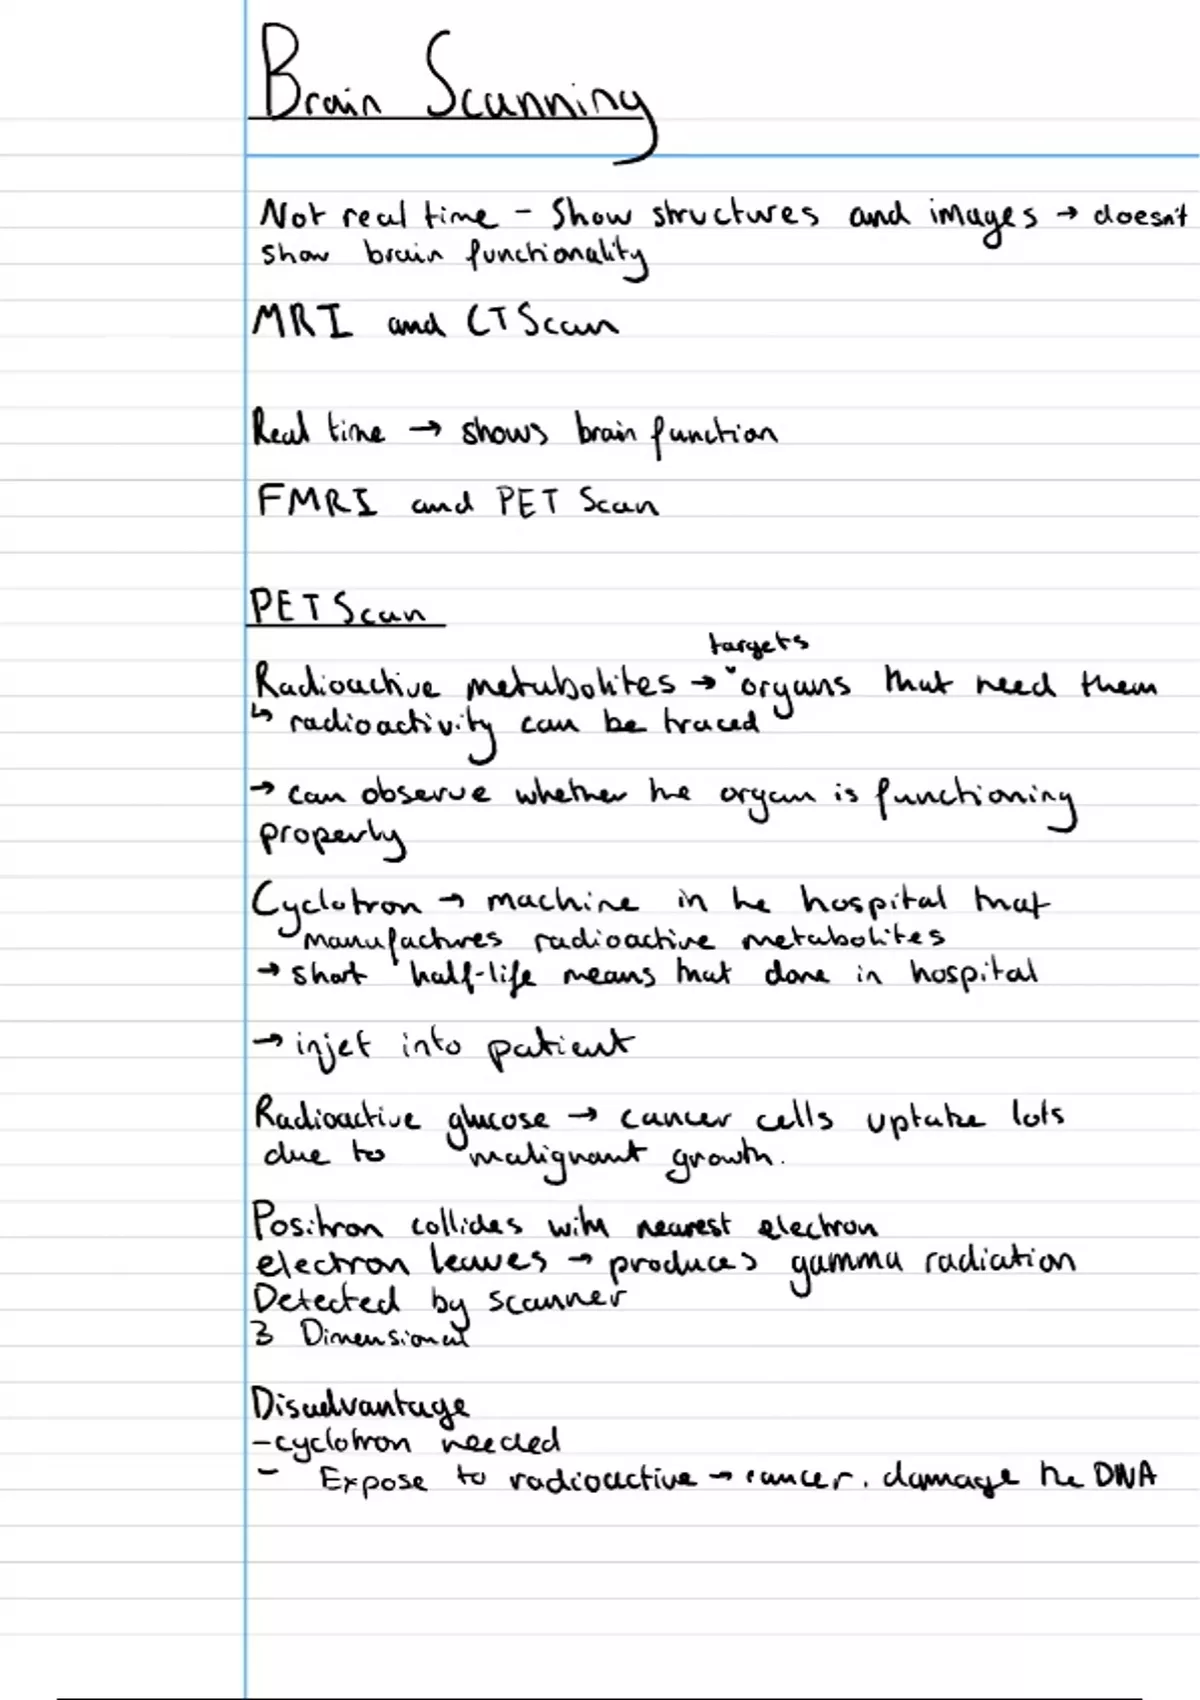 Brain Scanning
Not real time - Show structures and images → doesn't
show brain functionality
MRI and CT Scan
Real time → shows brain function
FMRI and PET Scan
PET Scan
targets
Radioactive metabolites → organs that need them
↳ radioactivity can be traced
→ can observe whether the organ is functioning
properly
Cyclotron → machine in the hospital that
manufactures radioactive metabolites
→ short half-life means that done in hospital
→ injet into patient
Radioactive glucose → cancer cells uptake lots
due to malignant growth.
Positron collides with nearest electron
electron leaves → produces gamma radiation
Detected by scanner
3 Dimensional
Disadvantage
- cyclotron needed
- Expose to radioactive → cancer. damage the DNA